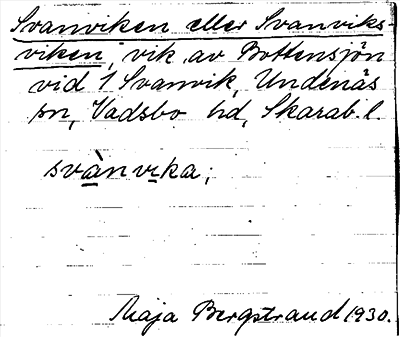 Svanviken eller Svanviks
viken, vik av Bottensjön
vid 1 Svanvik, Undenäs
sn, Vadsbo hd, Skarab. l.
svànvika;
Maja Bergstrand 1930.